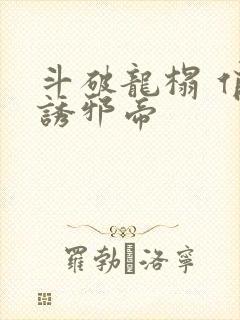 斗破龍榻
誘邪帝
羅勃·洛寧